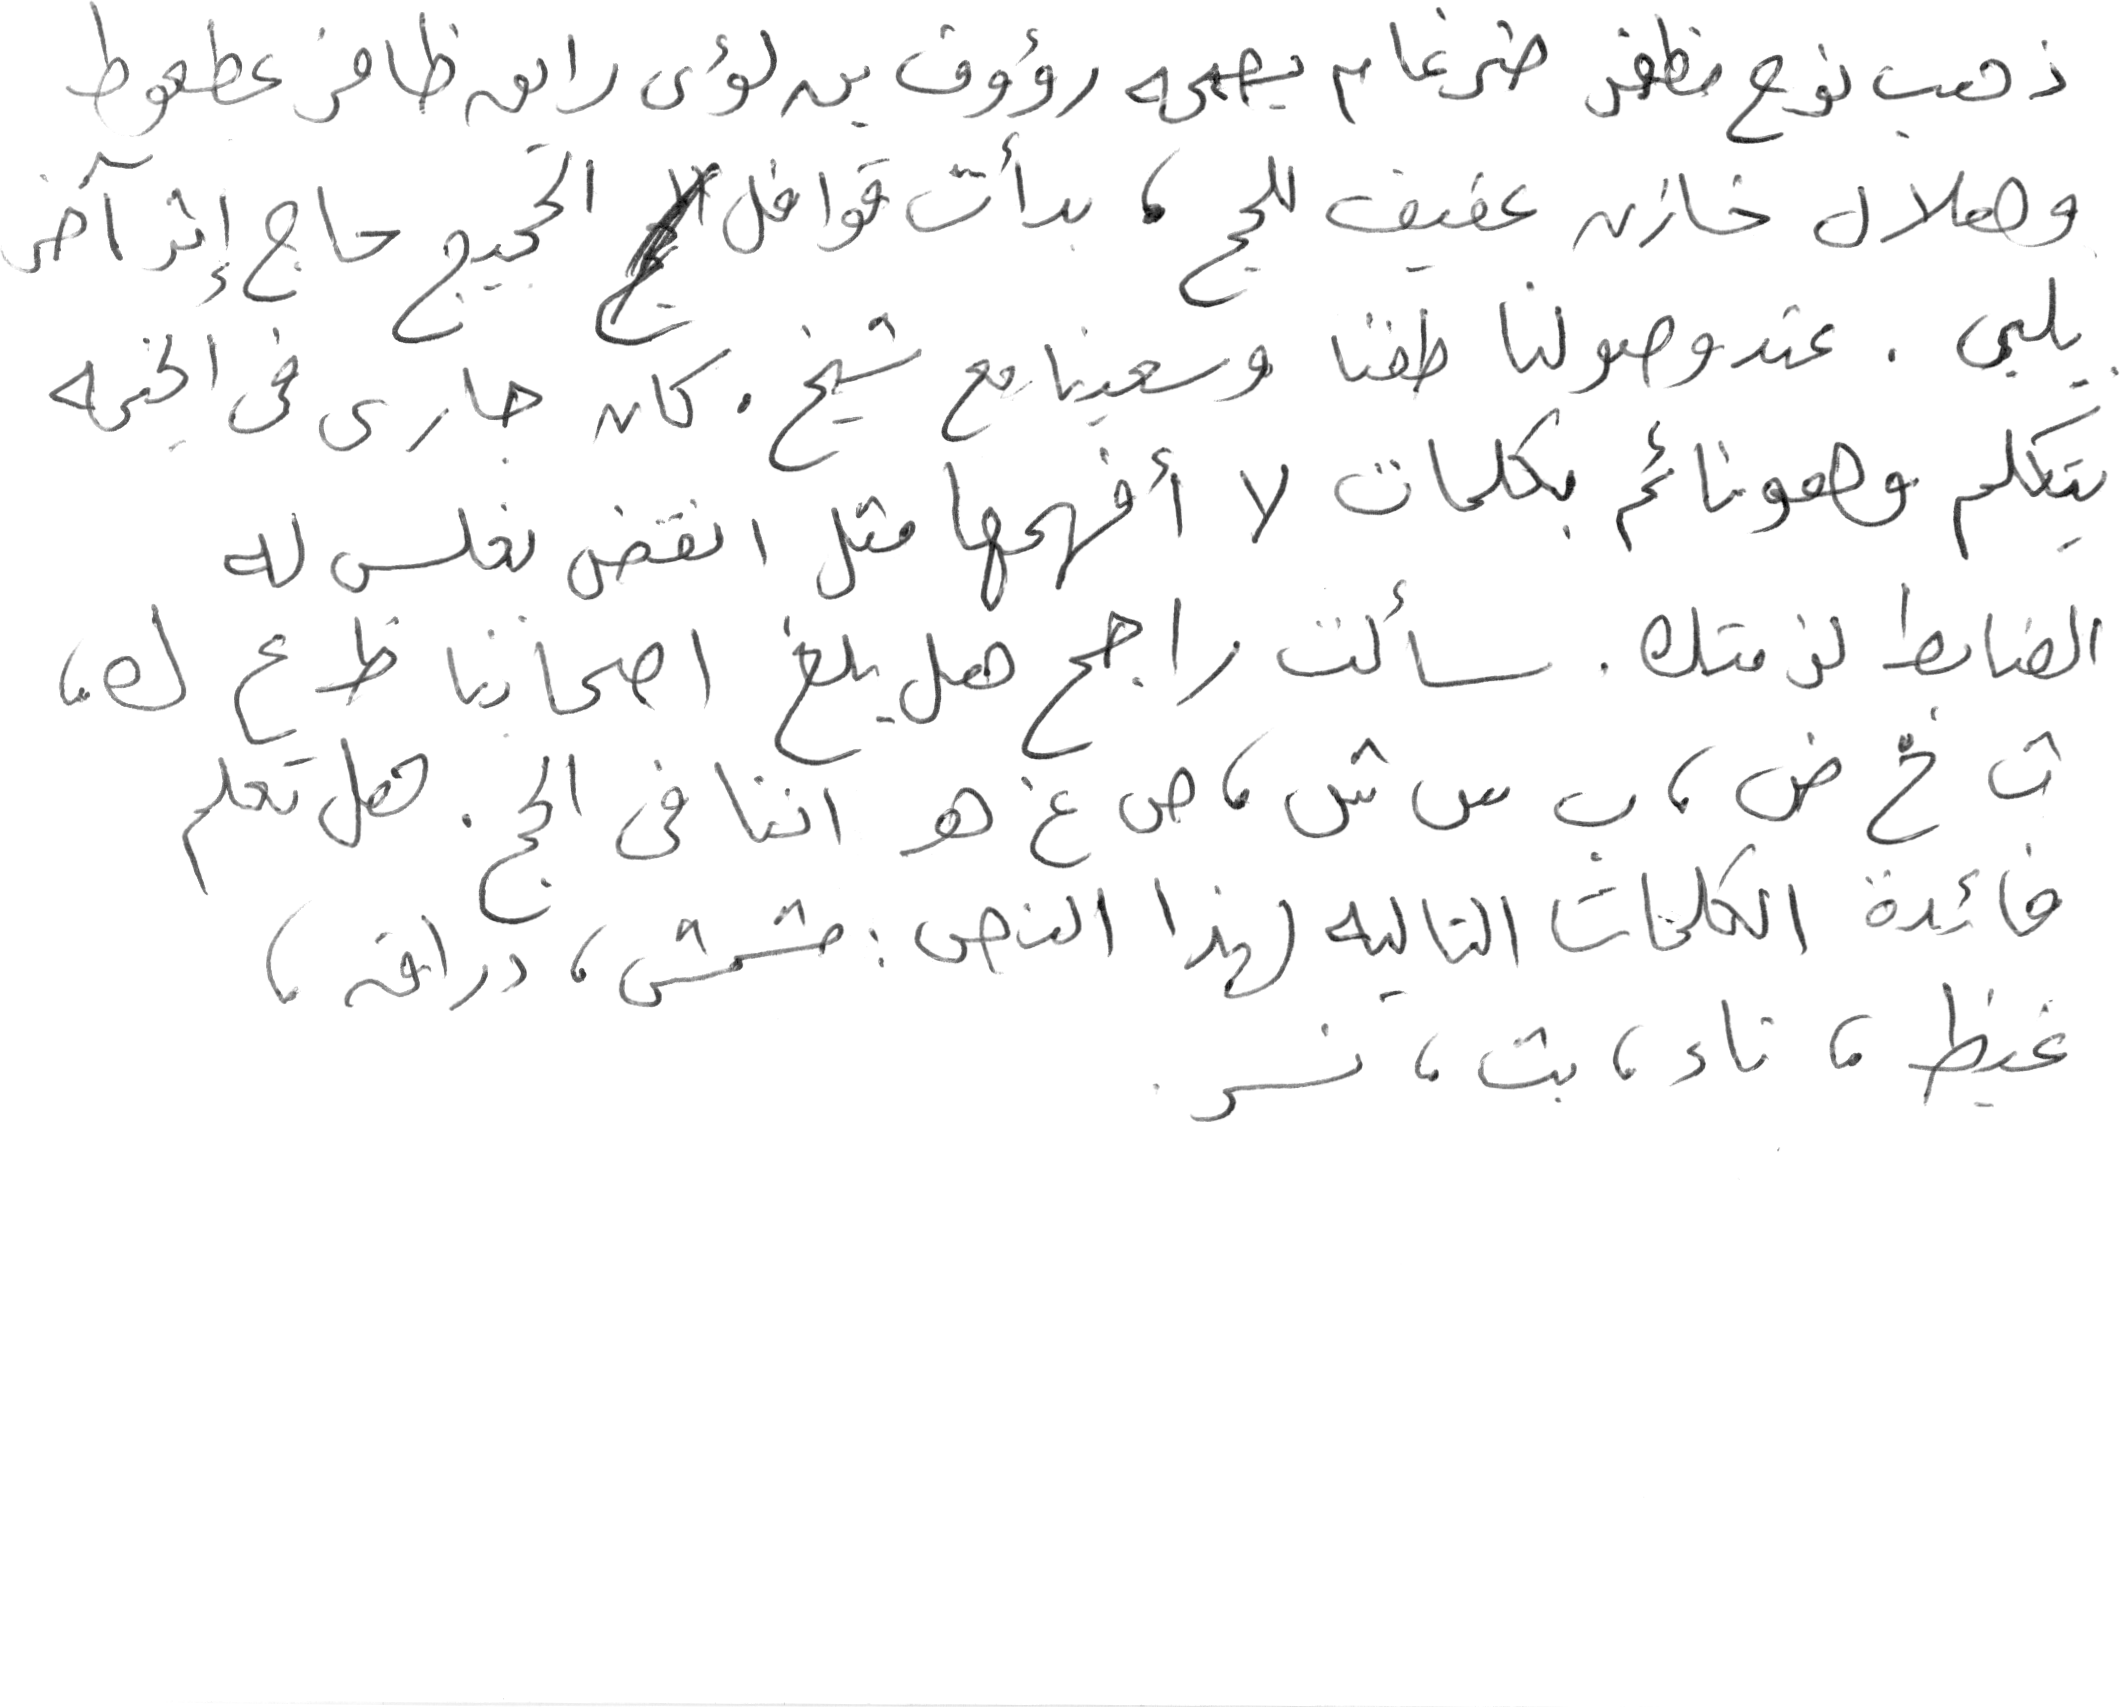 ذهب نوح مظفر ضرغام بصحبه رؤوف بن لؤى رائف ظافر عطعوط
وهلال خازن عفيف للحج ، بدأت قوافل الحجيج حاج إثر آخر
يلبى . عند وصولنا طفنا وسعينا مع شيخ . كان جارى فى الخيمه
يتكلم وهو نائم بكلمات لا أفهمها مثل انقض نغلس له
الضابط لزمتك . سألت راجح هل يبلغ اصحابنا ظ ع ك ه ،
ث خ ض ، ب س ش ، ص غ هو اننا فى الحج . هل تعلم
فائدة الكلمات التاليه لهذا النص : مشمش ، دراقه ،
غيظ ، تاء ، بث ، نسر .